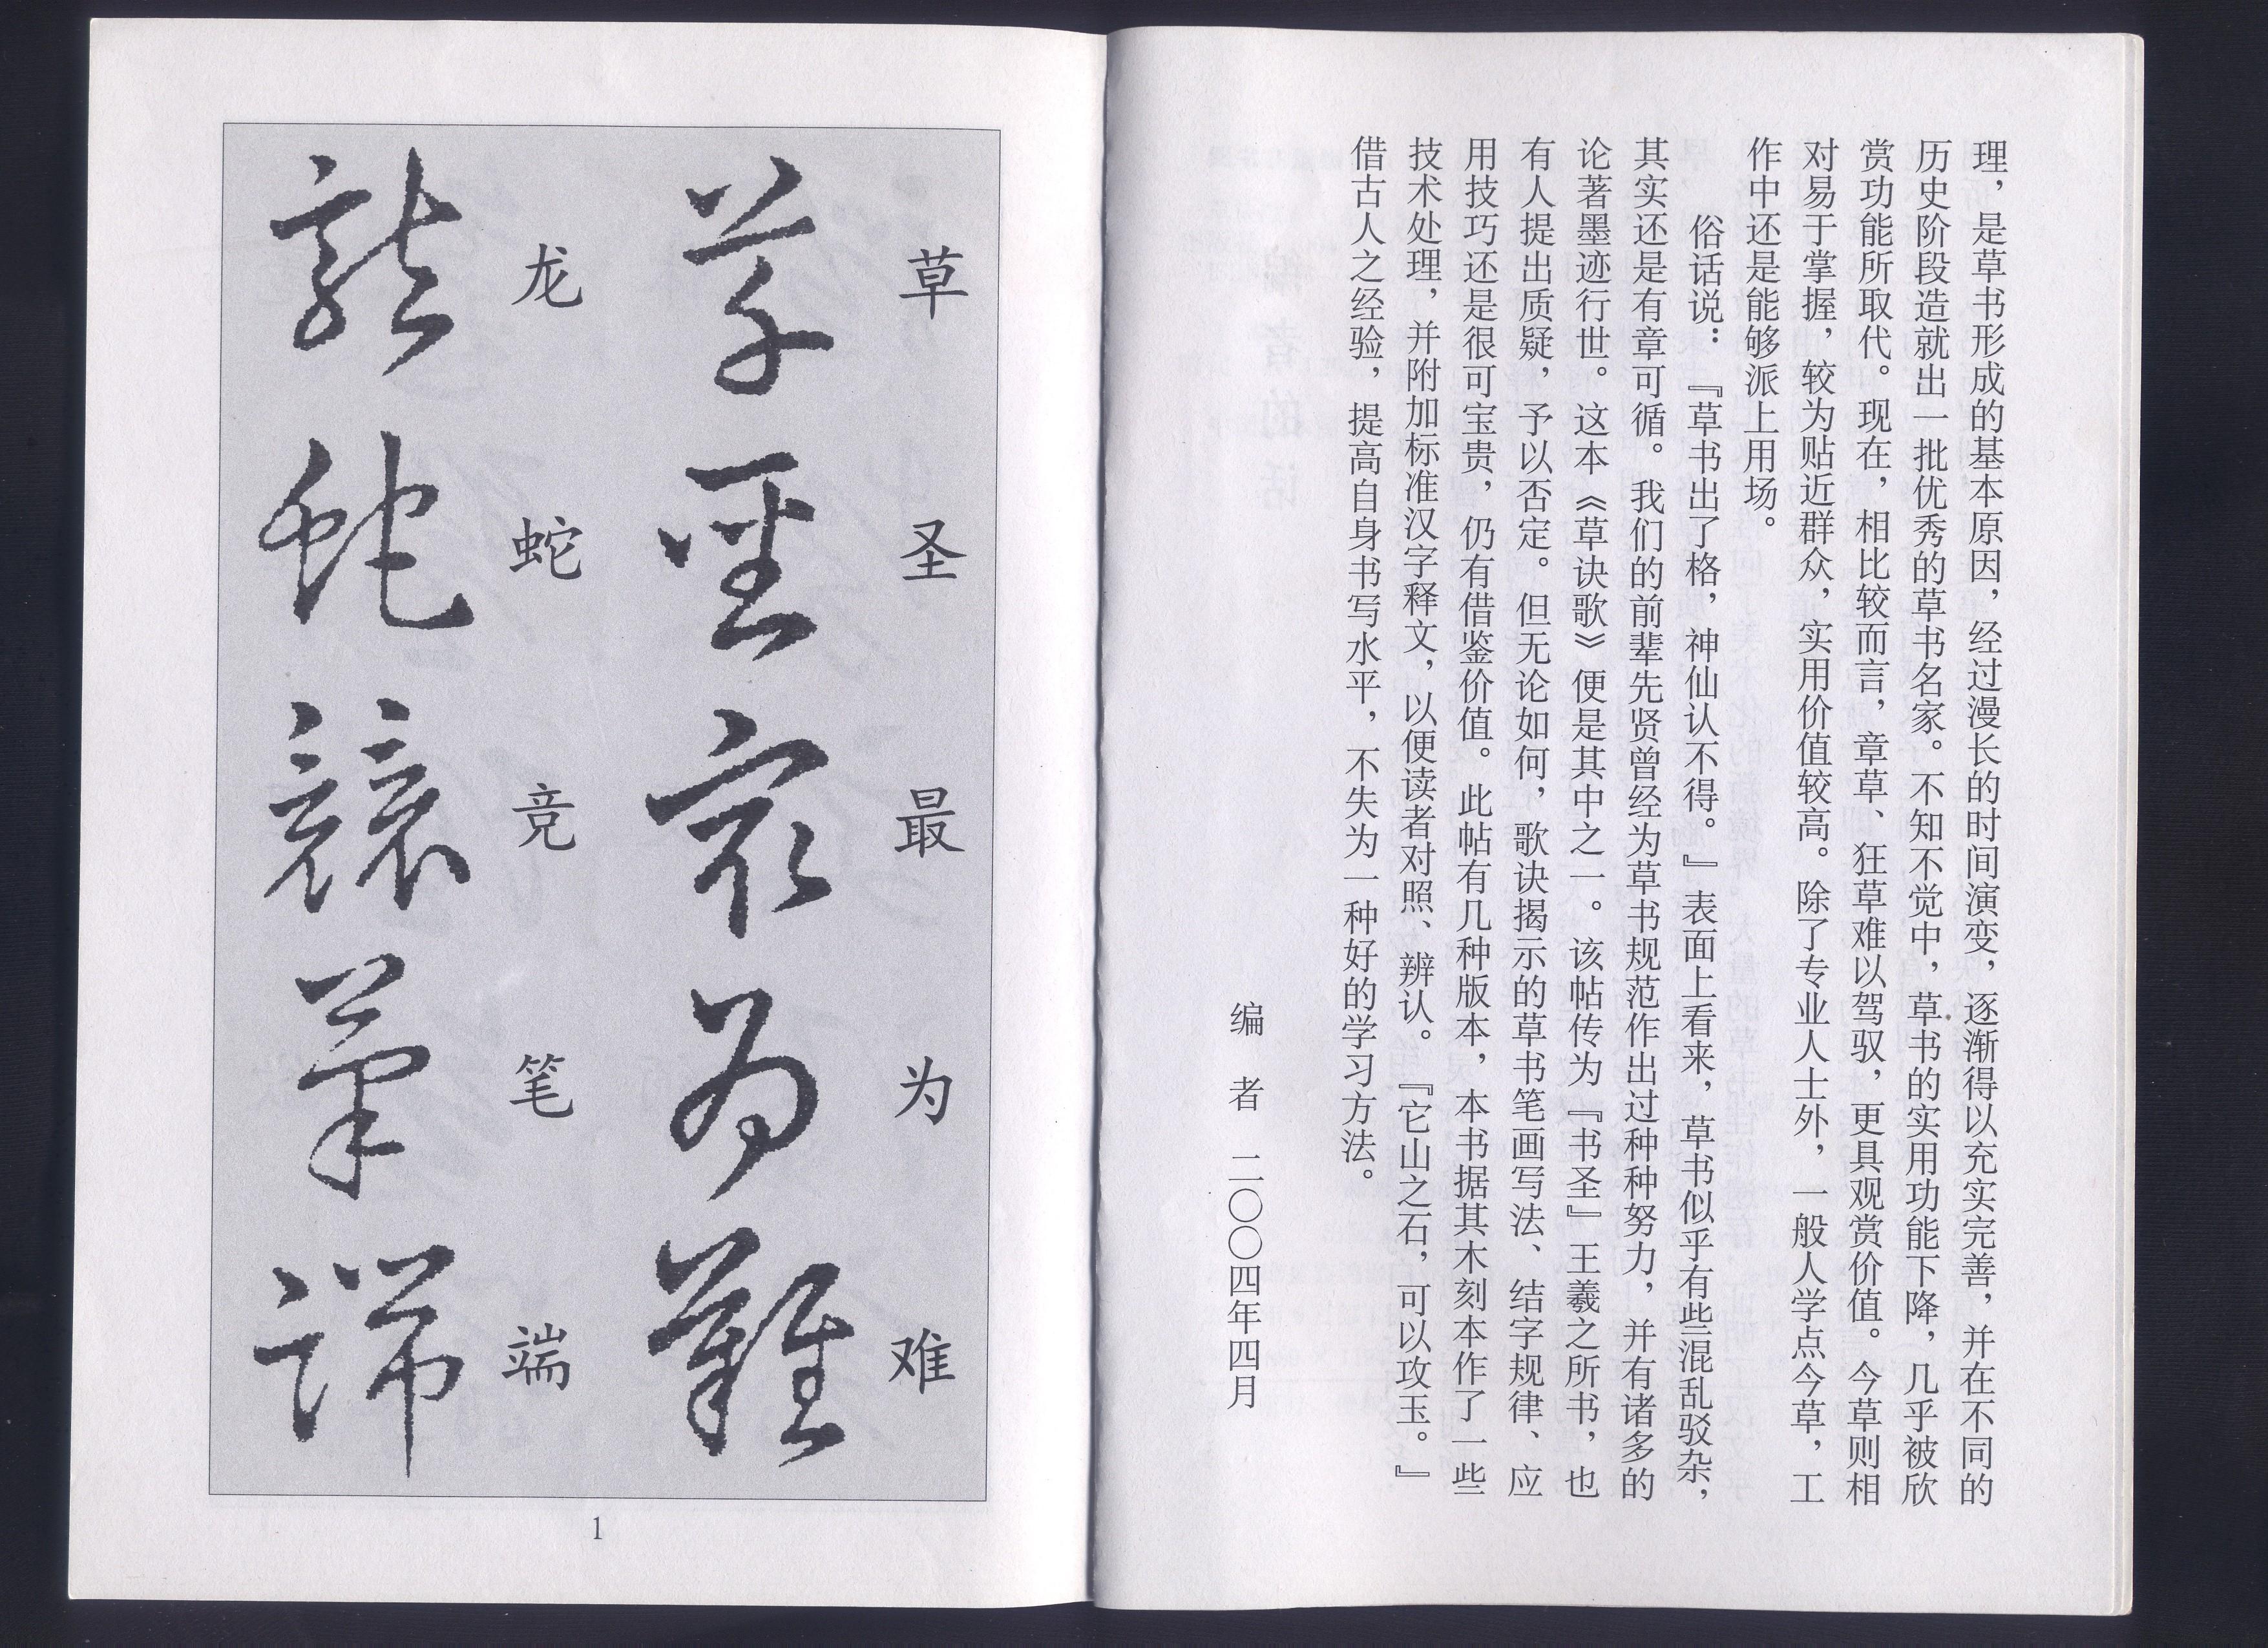 理，是草书形成的基本原因，经过漫长的时间演变，逐渐得以充实完善，并在不同的
历史阶段造就出一批优秀的草书名家。不知不觉中，草书的实用功能下降，几乎被欣
赏功能所取代。现在，相比较而言，章草、狂草难以驾驭，更具观赏价值。今草则相
对易于掌握，较为贴近群众，实用价值较高。除了专业人士外，一般人学点今草，工
作中还是能够派上用场。
俗话说：『草书出了格，神仙认不得。』表面上看来，草书似乎有些混乱驳杂，
其实还是有章可循。我们的前辈先贤曾经为草书规范作出过种种努力，并有诸多的
论著墨迹行世。这本《草诀歌》便是其中之一。该帖传为『书圣』王羲之所书，也
有人提出质疑，予以否定。但无论如何，歌诀揭示的草书笔画写法、结字规律、应
用技巧还是很可宝贵，仍有借鉴价值。此帖有几种版本，本书据其木刻本作了一些
技术处理，并附加标准汉字释文，以便读者对照、辨认。『它山之石，可以攻玉。』
借古人之经验，提高自身书写水平，不失为一种好的学习方法。
编者 二〇〇四年四月
草圣最为难
草聖最为難
龙蛇竞笔端
龍蛇競筆端
1